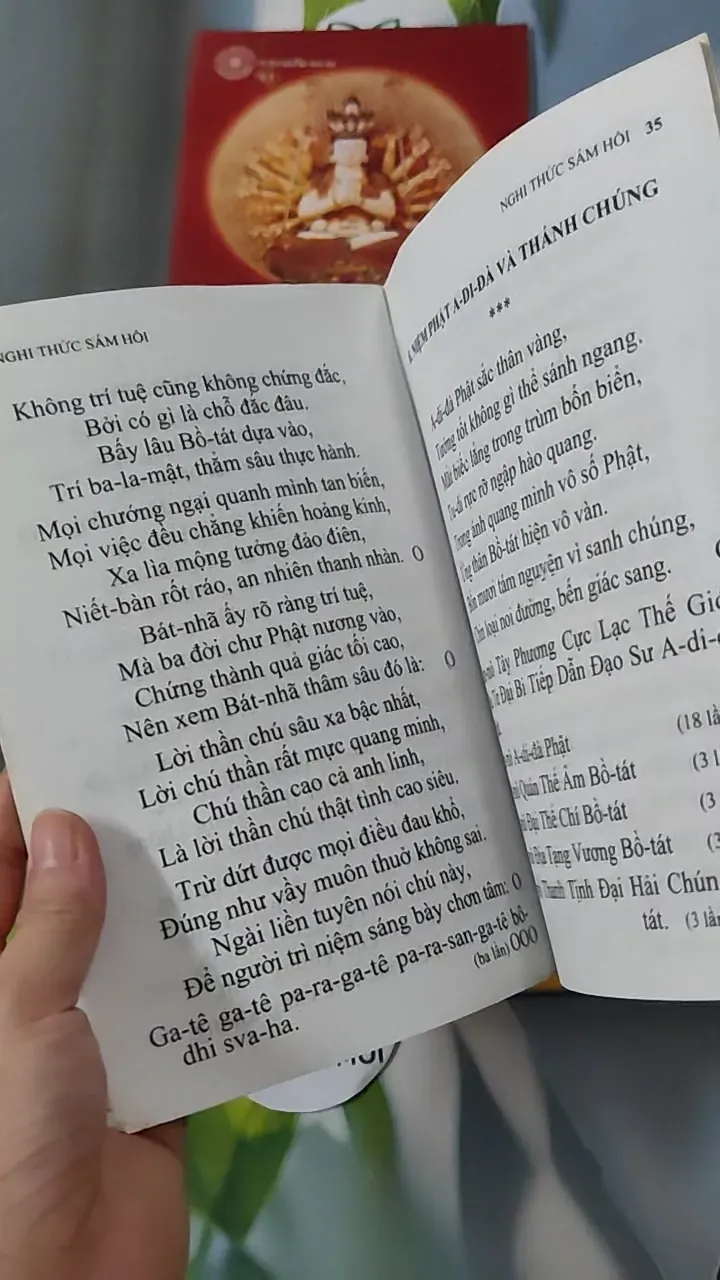 NGHI THỨC SÁM HỐI
Không trí tuệ cũng không chứng đắc,
Bởi có gì là chỗ đắc đâu.
Bấy lâu Bồ-tát dựa vào,
Trí ba-la-mật, thẳm sâu thực hành.
Mọi chướng ngại quanh mình tan biến,
Mọi việc đều chẳng khiến hoảng kinh,
Xa lìa mộng tưởng đảo điên,
Niết-bàn rốt ráo, an nhiên thanh nhàn. O
Bát-nhã ấy rõ ràng trí tuệ,
Mà ba đời chư Phật nương vào,
Chứng thành quả giác tối cao,
Nên xem Bát-nhã thâm sâu đó là: O
Lời thần chú sâu xa bậc nhất,
Lời chú thần rất mực quang minh,
Chú thần cao cả anh linh,
Là lời thần chú thật tình cao siêu.
Trừ dứt được mọi điều đau khổ,
Đúng như vầy muôn thuở không sai.
Ngài liền tuyên nói chú này,
Để người trì niệm sáng bày chơn tâm: O
Ga-tê ga-tê pa-ra-ga-tê pa-ra-san-ga-tê bô-
dhi sva-ha.
(ba lần) OOO
NGHI THỨC SÁM HỐI 35
NIỆM PHẬT A-DI-ĐÀ VÀ THÁNH CHÚNG
***
A-di-đà Phật sắc thân vàng,
Tướng tốt không gì thể sánh ngang.
Mắt biếc lắng trong trùm bốn biển,
Tu-di rực rỡ ngập hào quang.
Trong ánh quang minh vô số Phật,
thân Bồ-tát hiện vô vàn.
mươi tám nguyện vì sanh chúng,
loại noi đường, bến giác sang.
Tây Phương Cực Lạc Thế
Từ Đại Bi Tiếp Dẫn Đạo Sư A-di-
A-di-đà Phật (18
Quán Thế Âm Bồ-tát (3
Đại Thế Chí Bồ-tát (3
Địa Tạng Vương Bồ-tát
Thanh Tịnh Đại Hải
tát. (3